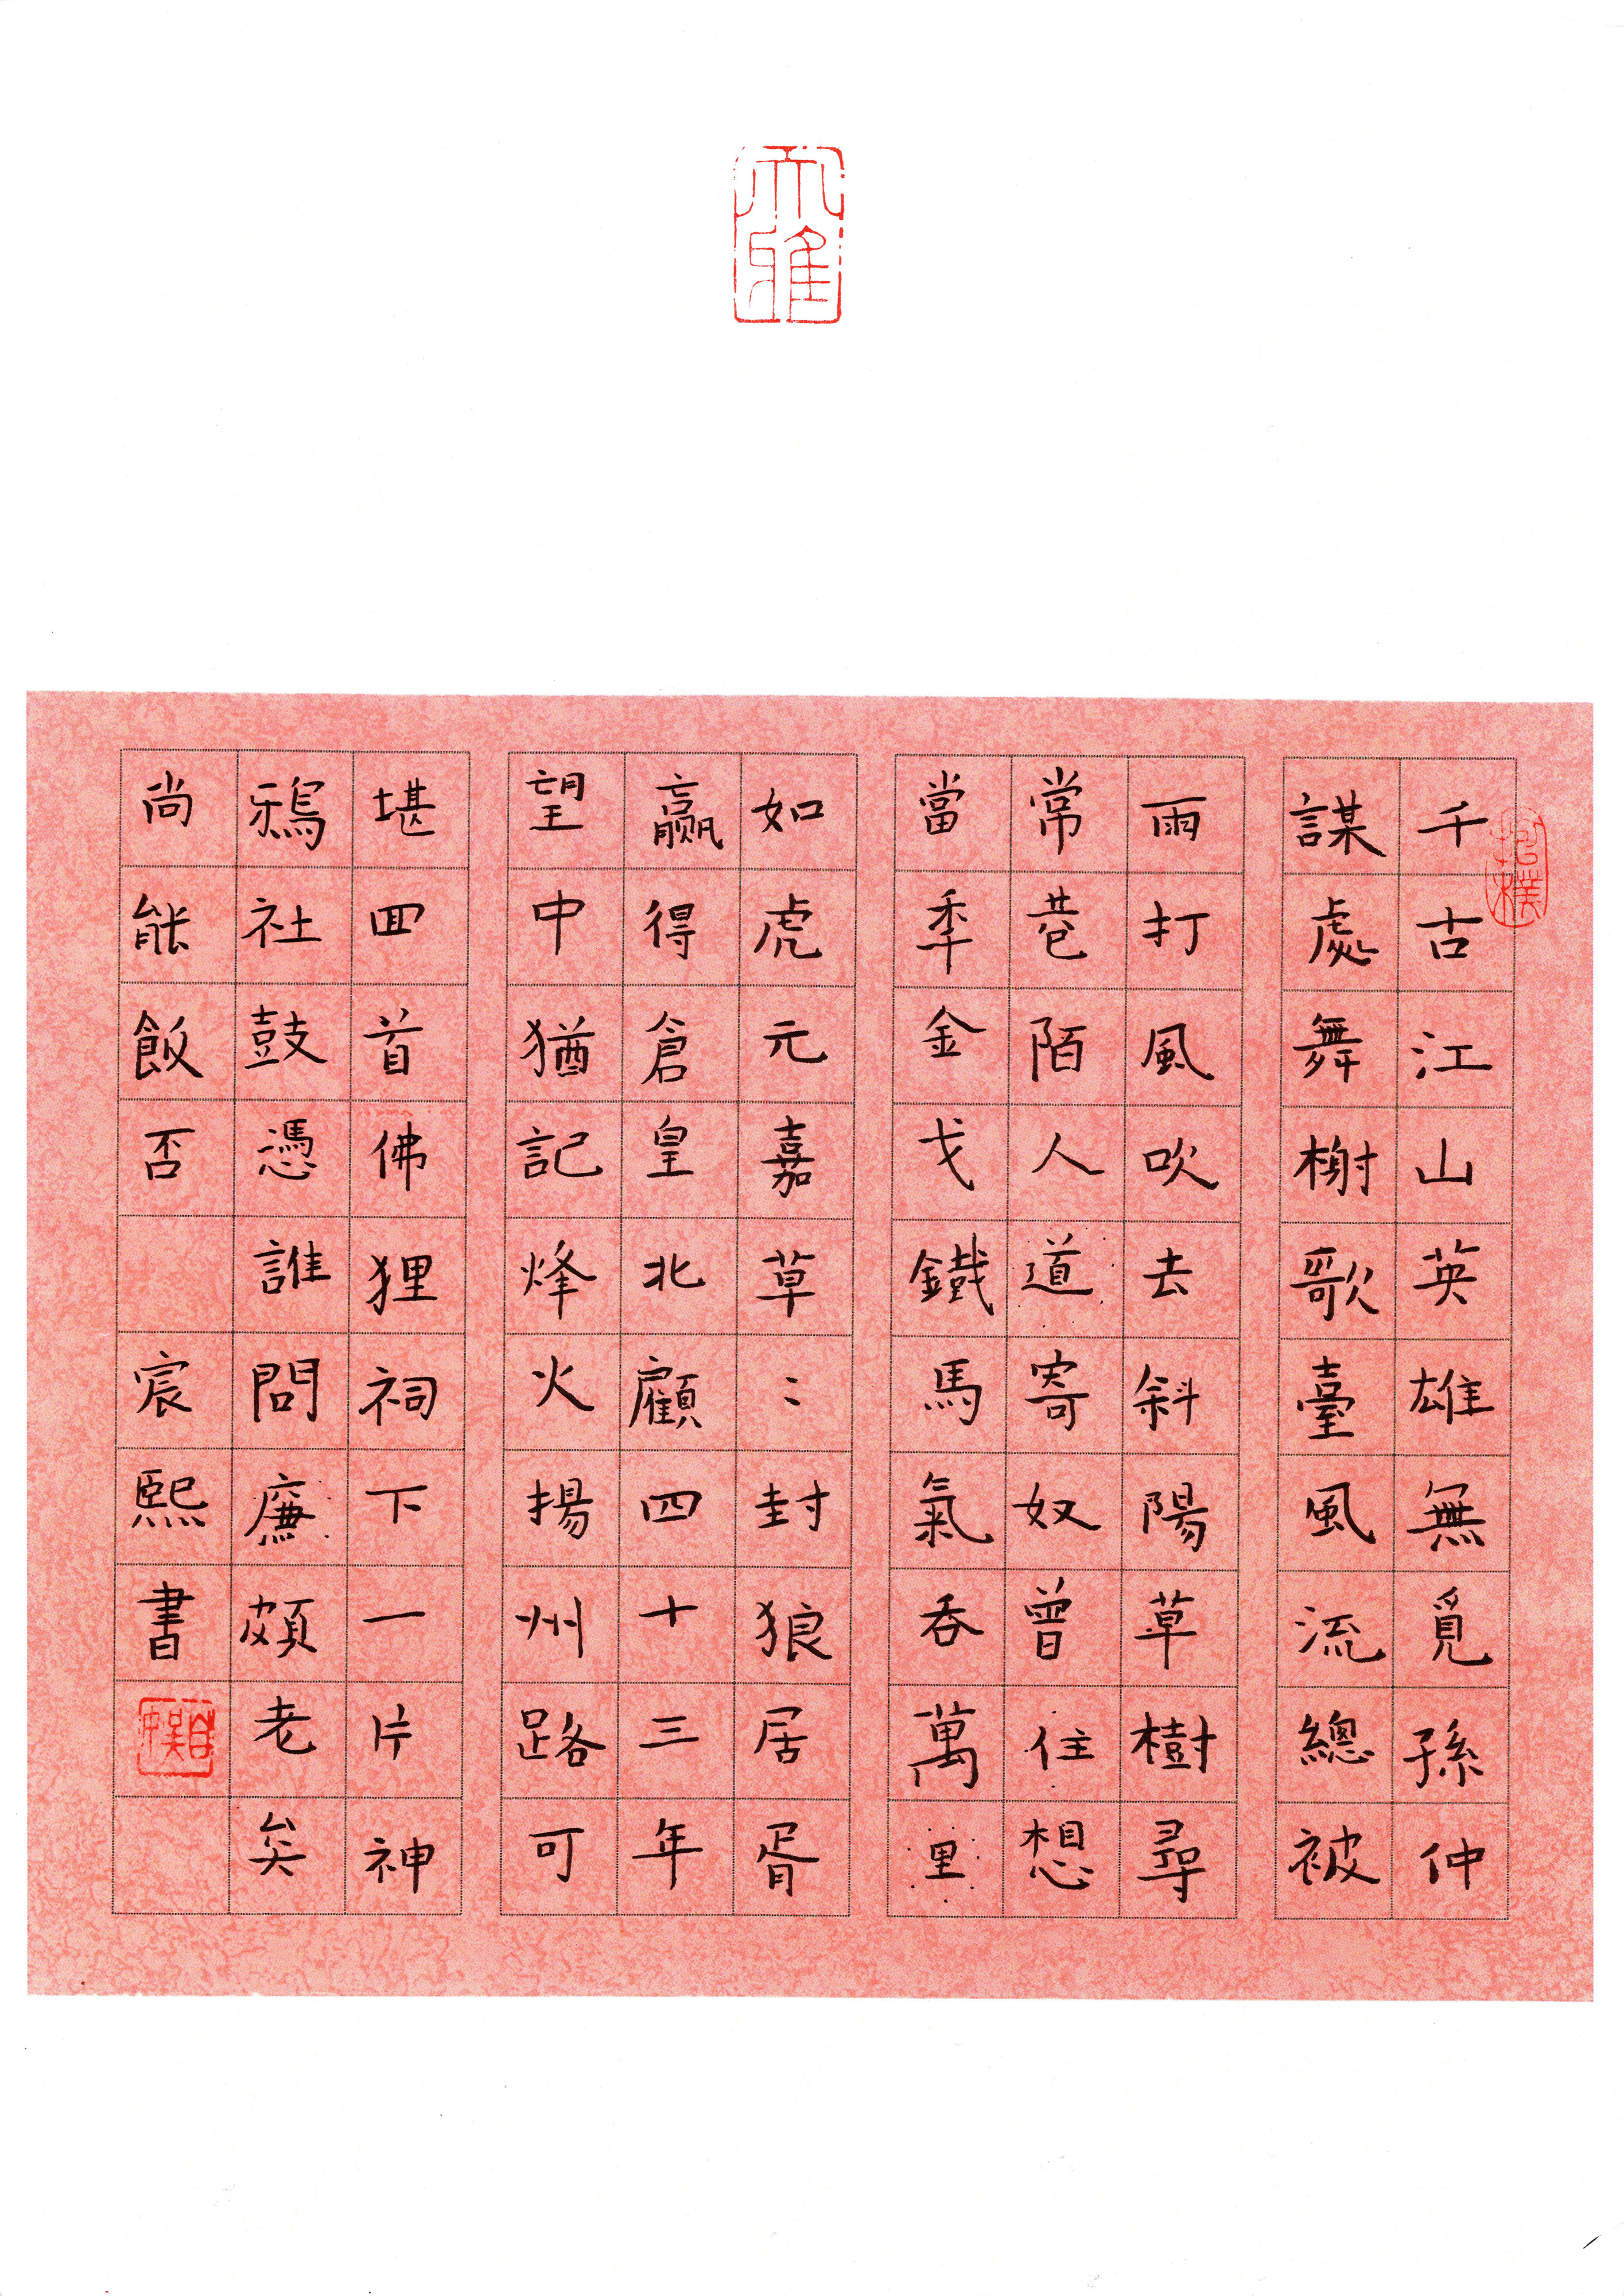 大雅
抱樸
千古江山英雄無覓孫仲
謀處舞榭歌臺風流總被
雨打風吹去斜陽草樹尋
常巷陌人道寄奴曾住想
當秊金戈鐵馬氣吞萬里
如虎元嘉草〻封狼居胥
贏得倉皇北顧四十三年
望中猶記烽火揚州路可
堪囬首佛狸祠下一片神
鴉社鼓憑誰問廉頗老矣
尚能飯否 宸熙書